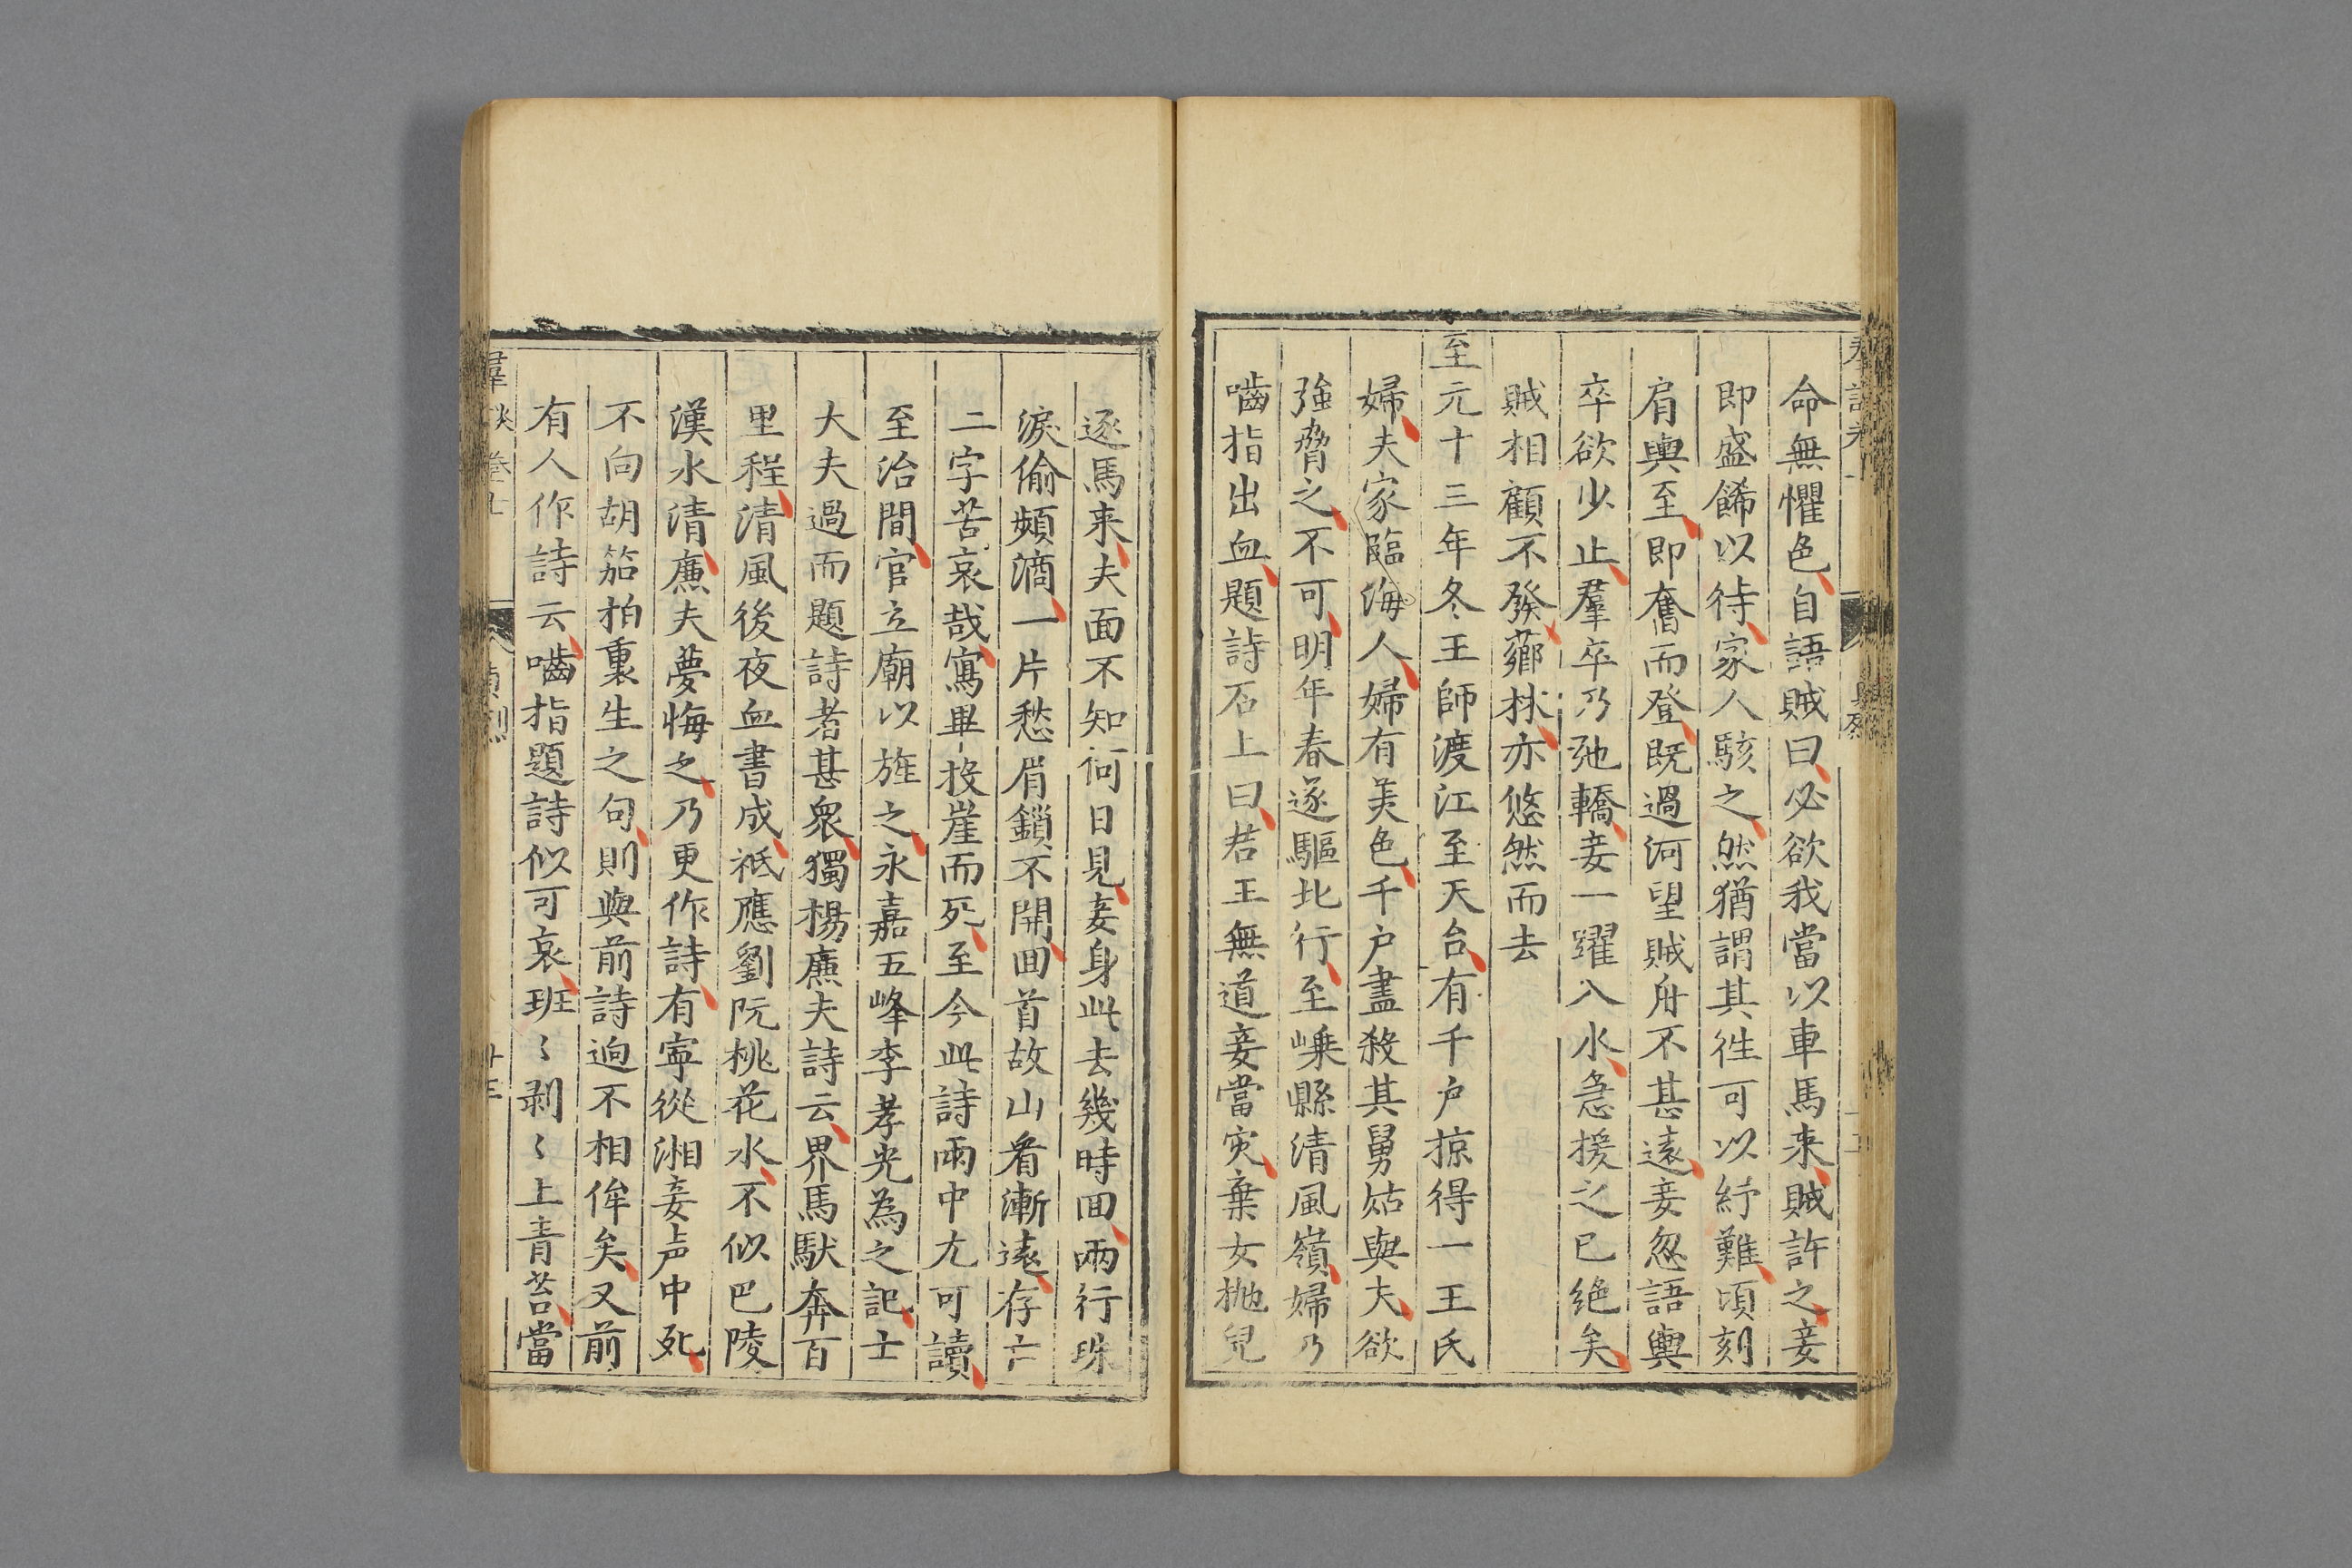 命無懼色自語賊曰必欲我當以車馬来賊許之妾
即盛餙以待家人駭之然猶謂其徃可以紓難頃刻
肩輿至即奮而登既過河望賊舟不甚遠妾忽語輿
卒欲少止羣卒乃弛轎妾一躍入水急援之已绝矣
賊相顧不發薌林亦悠然而去
至元十三年冬王師渡江至天台有千户掠得一王氏
婦夫家臨海人婦有美色千户盡殺其舅姑與夫欲
強脅之不可明年春遂驅北行至嵊縣清風嶺婦乃
嚙指出血題詩石上曰君王無道妾當灾棄女抛兒
逐馬来夫面不知何日見妾身此去幾時囬兩行珠
淚偷頻滴一片愁眉鎖不開囬首故山看漸遠存亡
二字苦哀哉寫畢投崖而死至今此詩雨中尢可讀
至治間官立廟以旌之永嘉五峰李孝光為之記士
大夫過而題詩者甚衆獨楊廉夫詩云界馬馱奔百
里程清風後夜血書成祗應劉阮桃花水不似巴陵
漢水清廉夫夢悔之乃更作詩有寜從湘妾声中死
不向胡笳拍裏生之句則與前詩逈不相侔矣又前
有人作詩云嚙指題詩似可哀班〻剥〻上青苔當
羣談 卷七
貞烈
廿三